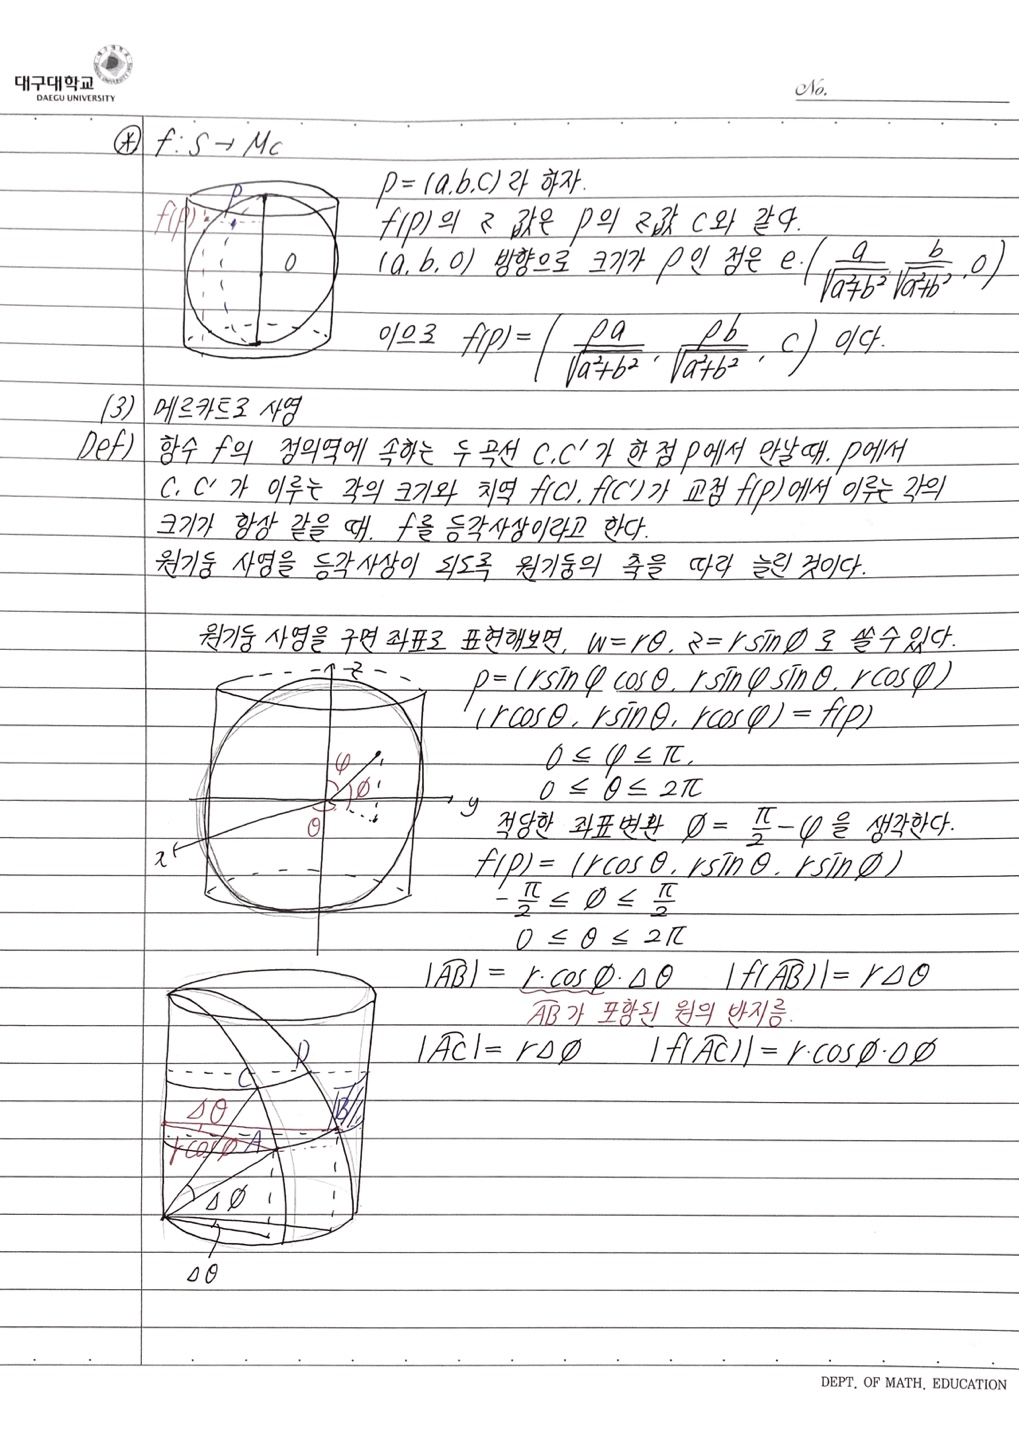 대구대학교
DAEGU UNIVERSITY
No.
(*) f : S → Mc
P
f(P)
O
p = (a, b, c) 라 하자.
f(p)의 z 값은 p의 z값 c와 같다.
(a, b, 0) 방향으로 크기가 ρ인 점은 e·(a/√(a²+b²), b/√(a²+b²), 0)
이으로 f(p) = (ρa/√(a²+b²), ρb/√(a²+b²), c) 이다.
(3) 메르카트로 사영
Def) 함수 f의 정의역에 속하는 두 곡선 C, C'가 한 점 p에서 만날때, p에서
C, C'가 이루는 각의 크기와 치역 f(C), f(C')가 교점 f(p)에서 이루는 각의
크기가 항상 같을 때, f를 등각사상이라고 한다.
원기둥 사영을 등각사상이 되도록 원기둥의 축을 따라 늘린 것이다.
원기둥 사영을 구면 좌표로 표현해보면, w = rθ, z = r sin∅로 쓸 수 있다.
z
φ
∅
θ
y
x
p = (r sinφ cosθ, r sinφ sinθ, r cosφ)
(r cosθ, r sinθ, r cosφ) = f(p)
0 ≤ φ ≤ π,
0 ≤ θ ≤ 2π
적당한 좌표변환 ∅ = π/2 - φ을 생각한다.
f(p) = (r cosθ, r sinθ, r sin∅)
-π/2 ≤ ∅ ≤ π/2
0 ≤ θ ≤ 2π
|AB| = r·cos∅·Δθ |f(AB)| = rΔθ
AB가 포함된 원의 반지름.
|AC| = rΔ∅ |f(AC)| = r·cos∅·Δ∅
D
C
B
Δθ
A
r cos∅
Δ∅
Δθ
DEPT. OF MATH. EDUCATION